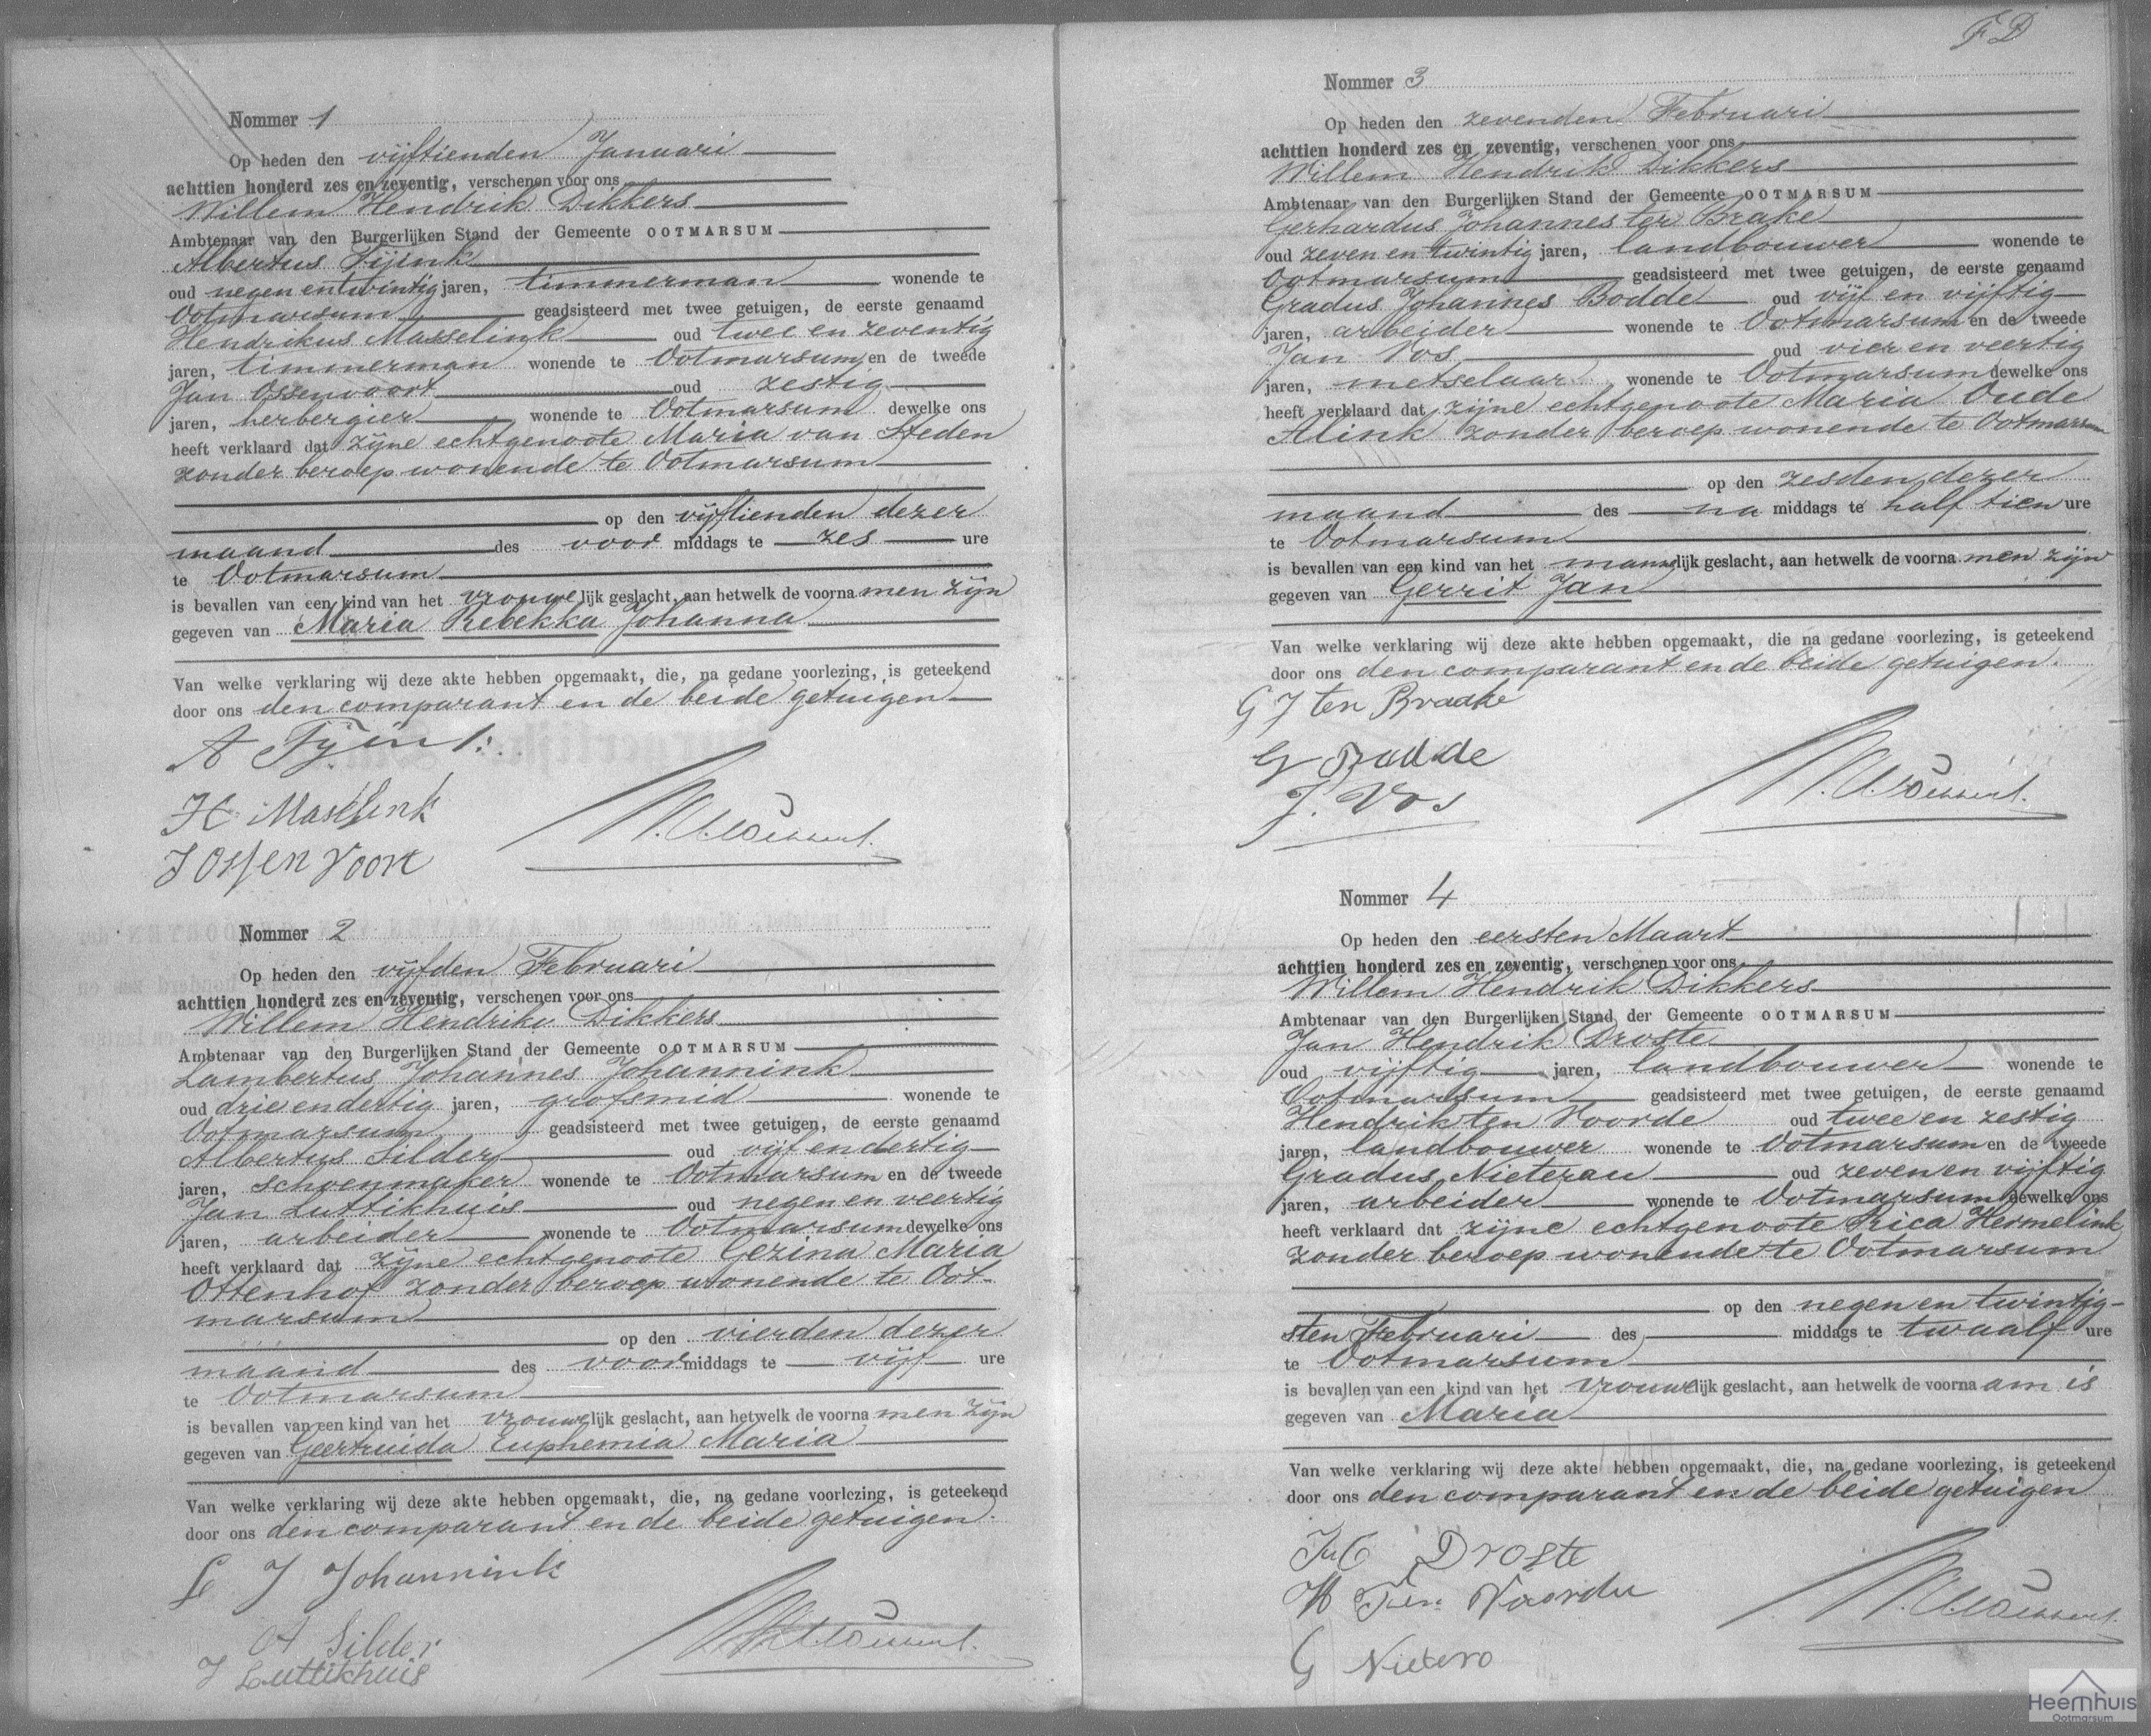 Nommer 1
Op heden den vijftienden Januari
achttien honderd zes en zeventig, verschenen voor ons
Willem Hendrik Dikkers
Ambtenaar van den Burgerlijken Stand der Gemeente OOTMARSUM
Albertus Tijink
oud negen en twintig jaren, timmerman wonende te
Ootmarsum geadsisteerd met twee getuigen, de eerste genaamd
Hendrikus Masselink oud twee en zeventig
jaren, timmerman wonende te Ootmarsum en de tweede
Jan Ossenvoort oud zestig
jaren, herbergier wonende te Ootmarsum dewelke ons
heeft verklaard dat zijne echtgenoote Maria van Steden
zonder beroep wonende te Ootmarsum
op den vijftienden dezer
maand des voor middags te zes ure
te Ootmarsum
is bevallen van een kind van het vrouwelijk geslacht, aan hetwelk de voornamen zijn
gegeven van Maria Rebekka Johanna
Van welke verklaring wij deze akte hebben opgemaakt, die, na gedane voorlezing, is geteekend
door ons den comparant en de beide getuigen
A Tijink
H Masselink
J Ossenvoort
Nommer 2
Op heden den vijfden Februari
achttien honderd zes en zeventig, verschenen voor ons
Willem Hendrik Dikkers
Ambtenaar van den Burgerlijken Stand der Gemeente OOTMARSUM
Lambertus Johannes Johannink
oud drie en dertig jaren, grofsmid wonende te
Ootmarsum geadsisteerd met twee getuigen, de eerste genaamd
Albertus Silder oud vijf en dertig
jaren, schoenmaker wonende te Ootmarsum en de tweede
Jan Luttikhuis oud negen en veertig
jaren, arbeider wonende te Ootmarsum dewelke ons
heeft verklaard dat zijne echtgenoote Gezina Maria
Ottenhof zonder beroep wonende te Oot-
marsum
op den vierden dezer
maand des voormiddags te vijf ure
te Ootmarsum
is bevallen van een kind van het vrouwelijk geslacht, aan hetwelk de voornamen zijn
gegeven van Geertruida Euphemia Maria
Van welke verklaring wij deze akte hebben opgemaakt, die, na gedane voorlezing, is geteekend
door ons den comparant en de beide getuigen.
L J Johannink
A Silder
J Luttikhuis
FD
Nommer 3
Op heden den zevenden Februari
achttien honderd zes en zeventig, verschenen voor ons
Willem Hendrik Dikkers
Ambtenaar van den Burgerlijken Stand der Gemeente OOTMARSUM
Gerhardus Johannes ter Brake
oud zeven en twintig jaren, landbouwer wonende te
Ootmarsum geadsisteerd met twee getuigen, de eerste genaamd
Gradus Johannes Bodde oud vijf en vijftig
jaren, arbeider wonende te Ootmarsum en de tweede
Jan Vos oud vier en veertig
jaren, metselaar wonende te Ootmarsum dewelke ons
heeft verklaard dat zijne echtgenoote Maria Oude
Alink zonder beroep wonende te Ootmarsum
op den zesden dezer
maand des na middags te half tien ure
te Ootmarsum
is bevallen van een kind van het mannelijk geslacht, aan hetwelk de voornamen zijn
gegeven van Gerrit Jan
Van welke verklaring wij deze akte hebben opgemaakt, die na gedane voorlezing, is geteekend
door ons den comparant en de beide getuigen.
G J ten Braake
G Bodde
J. Vos
Nommer 4
Op heden den eersten Maart
achttien honderd zes en zeventig, verschenen voor ons
Willem Hendrik Dikkers
Ambtenaar van den Burgerlijken Stand der Gemeente OOTMARSUM
Jan Hendrik Droste
oud vijftig jaren, landbouwer wonende te
Ootmarsum geadsisteerd met twee getuigen, de eerste genaamd
Hendrik ten Voorde oud twee en zestig
jaren, landbouwer wonende te Ootmarsum en de tweede
Gradus Nieterau oud zeven en vijftig
jaren, arbeider wonende te Ootmarsum dewelke ons
heeft verklaard dat zijne echtgenoote Rica Hermelink
zonder beroep wonende te Ootmarsum
op den negen en twintig-
sten Februari des middags te twaalf ure
te Ootmarsum
is bevallen van een kind van het vrouwelijk geslacht, aan hetwelk de voornaam is
gegeven van Maria
Van welke verklaring wij deze akte hebben opgemaakt, die, na gedane voorlezing, is geteekend
door ons den comparant en de beide getuigen
Droste
H Ten Voorde
G Nietero
Heemhuis
Ootmarsum